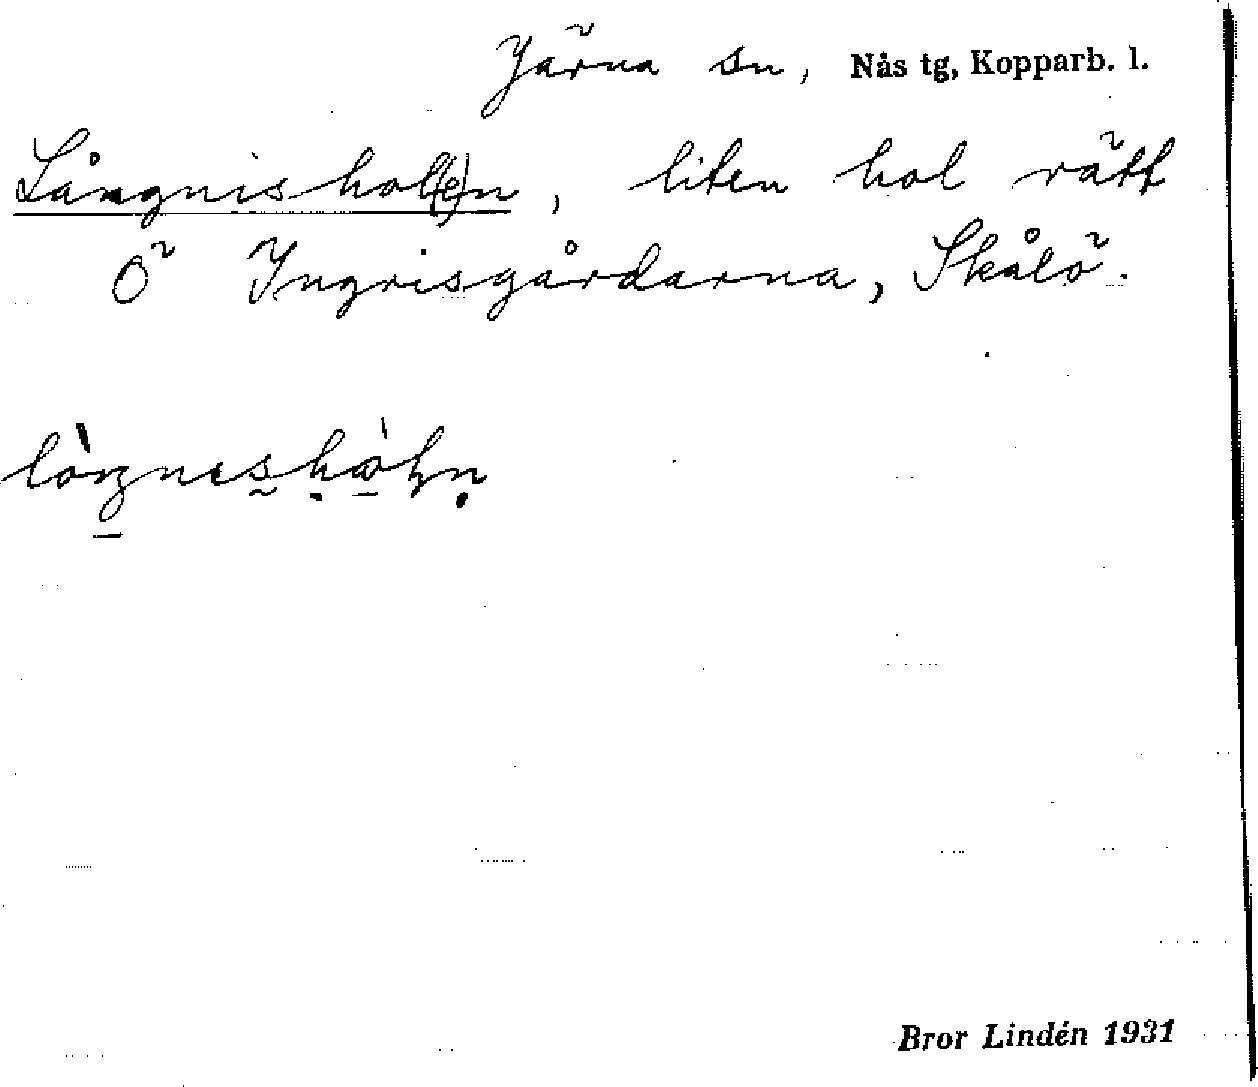 Järna sn, Nås tg, Kopparb. l.
Långnishol(e)n, liten hol rätt
Ö Ingrisgårdarna, Skålö.
Bror Lindén 1931